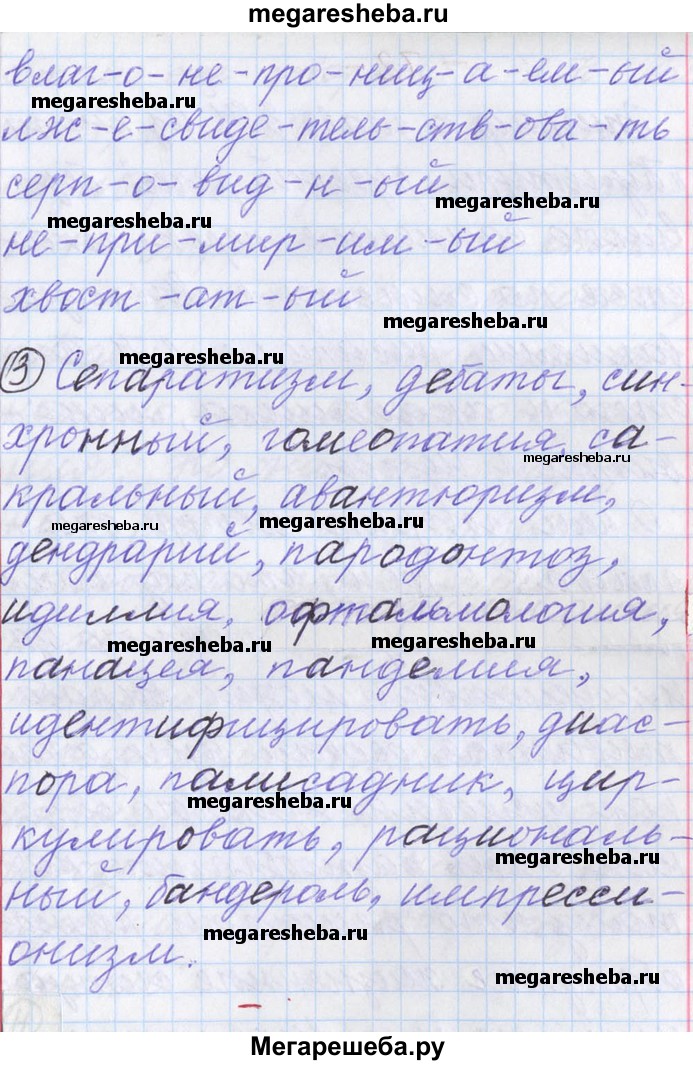 megaresheba.ru
влаг-о-не-про-ниц-а-ем-ый
megaresheba.ru
лж-е-свиде-тель-ств-ова-ть
серп-о-вид-н-ый
megaresheba.ru
megaresheba.ru
не-при-мир-им-ый
хвост-ат-ый
megaresheba.ru
megaresheba.ru
③ Сепаратизм, дебаты, син-
хронный, гомеопатия, са-
megaresheba.ru
кральный, авантюризм,
megaresheba.ru
megaresheba.ru
дендрарий, пародонтоз,
идиллия, офтальмология,
megaresheba.ru
megaresheba.ru
панацея, пандемия,
идентифицировать, диас-
пора, палисадник, цир-
megaresheba.ru
кулировать, рациональ-
megaresheba.ru
ный, бандероль, импресси-
megaresheba.ru
онизм.
megaresheba.ru
Мегарешеба.ру